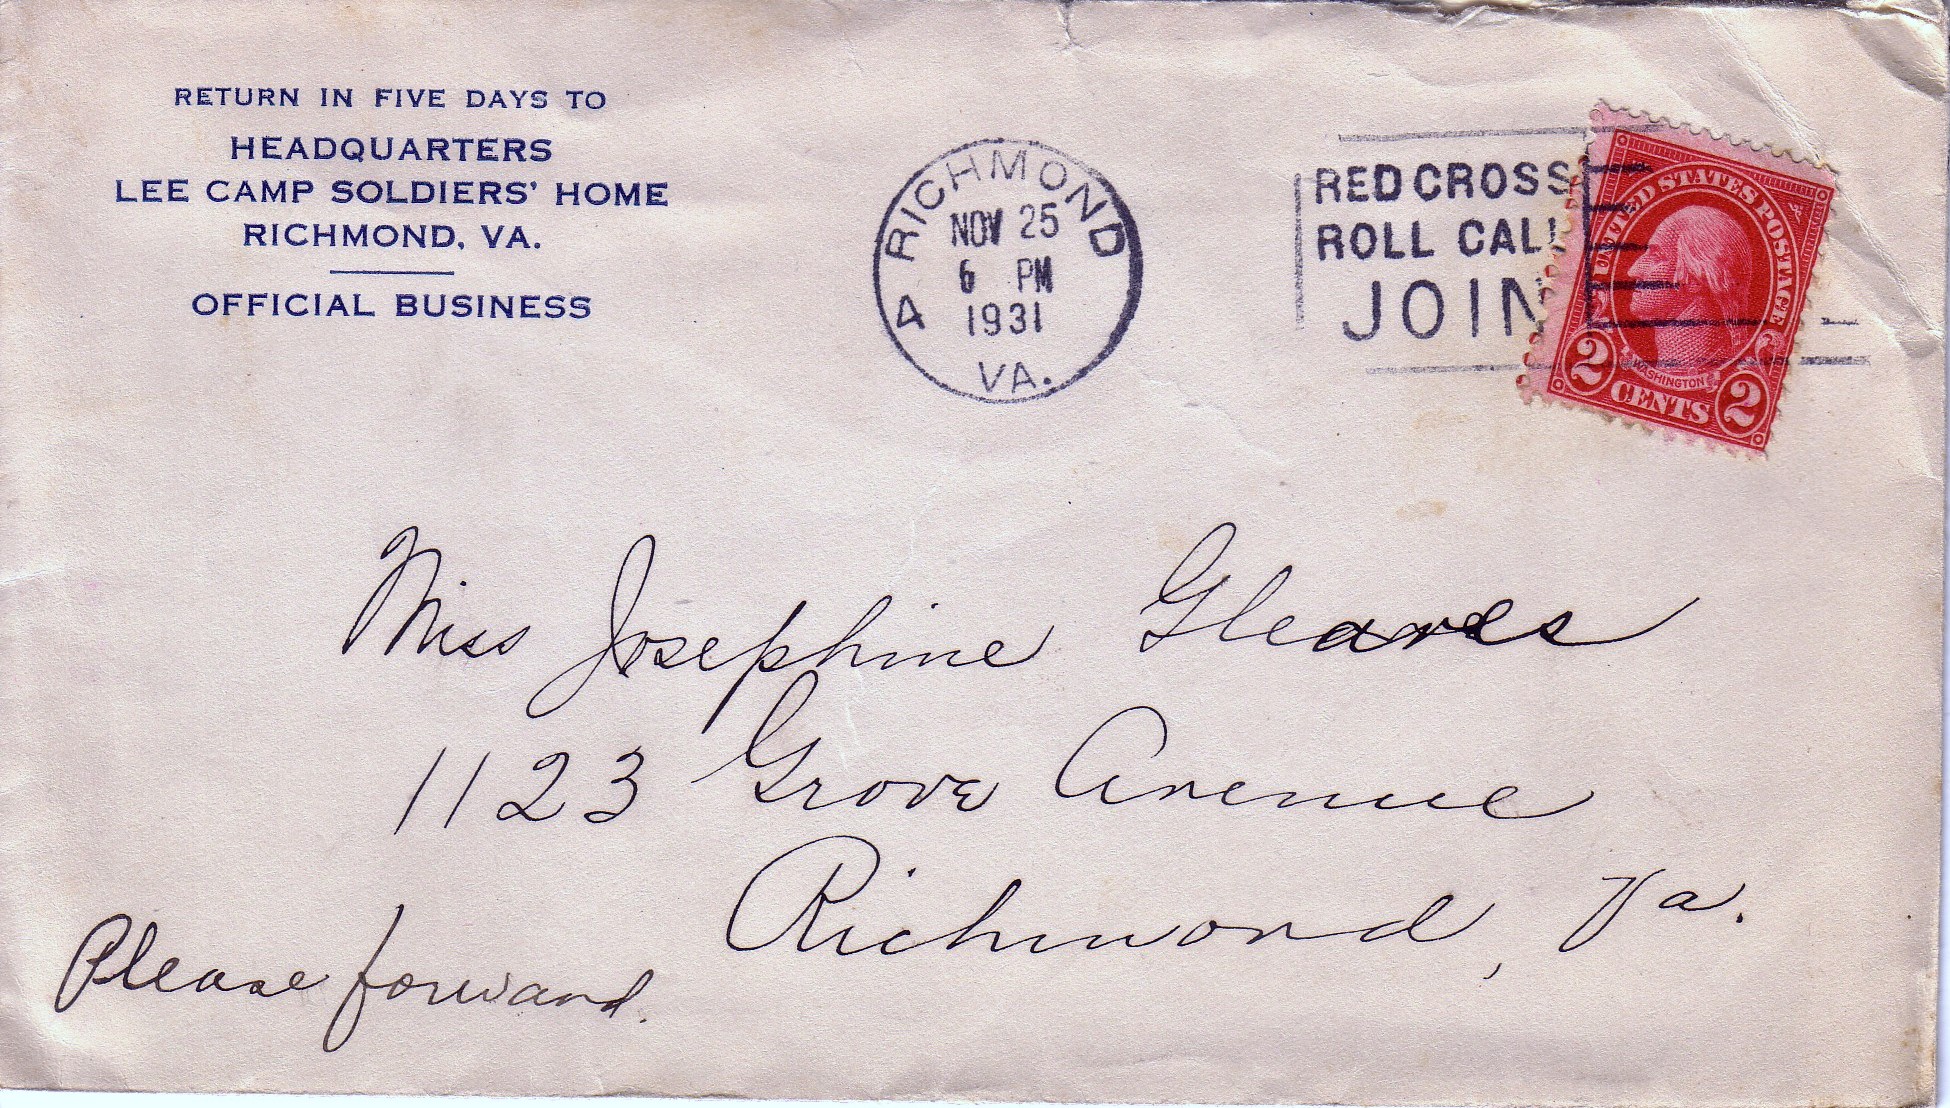 RETURN IN FIVE DAYS TO
HEADQUARTERS
LEE CAMP SOLDIERS' HOME
RICHMOND, VA.
OFFICIAL BUSINESS
RICHMOND
NOV 25
6 PM
1931
4
VA.
RED CROSS
ROLL CALL
JOIN
UNITED STATES POSTAGE
WASHINGTON
2 CENTS 2
Miss Josephine Gleaves
1123 Grove Avenue
Richmond, Va.
Please forward.